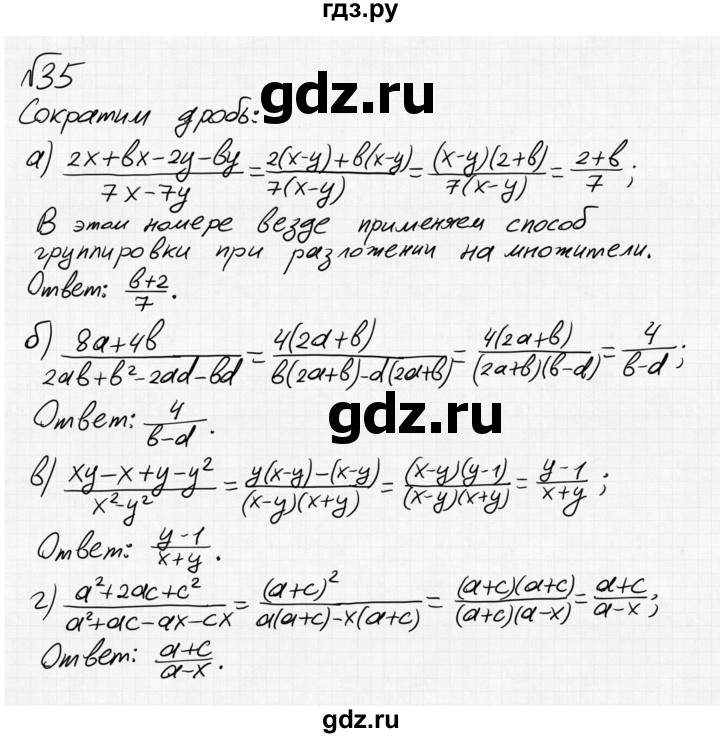 гдз.ру
№35
Сократим дробь:
gdz.ru
а) (2x+bx-2y-by)/(7x-7y) = (2(x-y)+b(x-y))/(7(x-y)) = ((x-y)(2+b))/(7(x-y)) = (2+b)/7;
В этом номере везде применяем способ
группировки при разложении на множители.
Ответ: (b+2)/7.
б) (8a+4b)/(2ab+b²-2ad-bd) = (4(2a+b))/(b(2a+b)-d(2a+b)) = (4(2a+b))/((2a+b)(b-d)) = 4/(b-d);
Ответ: 4/(b-d).
gdz.ru
в) (xy-x+y-y²)/(x²-y²) = (y(x-y)-(x-y))/((x-y)(x+y)) = ((x-y)(y-1))/((x-y)(x+y)) = (y-1)/(x+y);
Ответ: (y-1)/(x+y).
г) (a²+2ac+c²)/(a²+ac-ax-cx) = (a+c)²/(a(a+c)-x(a+c)) = ((a+c)(a+c))/((a+c)(a-x)) = (a+c)/(a-x);
Ответ: (a+c)/(a-x).
gdz.ru